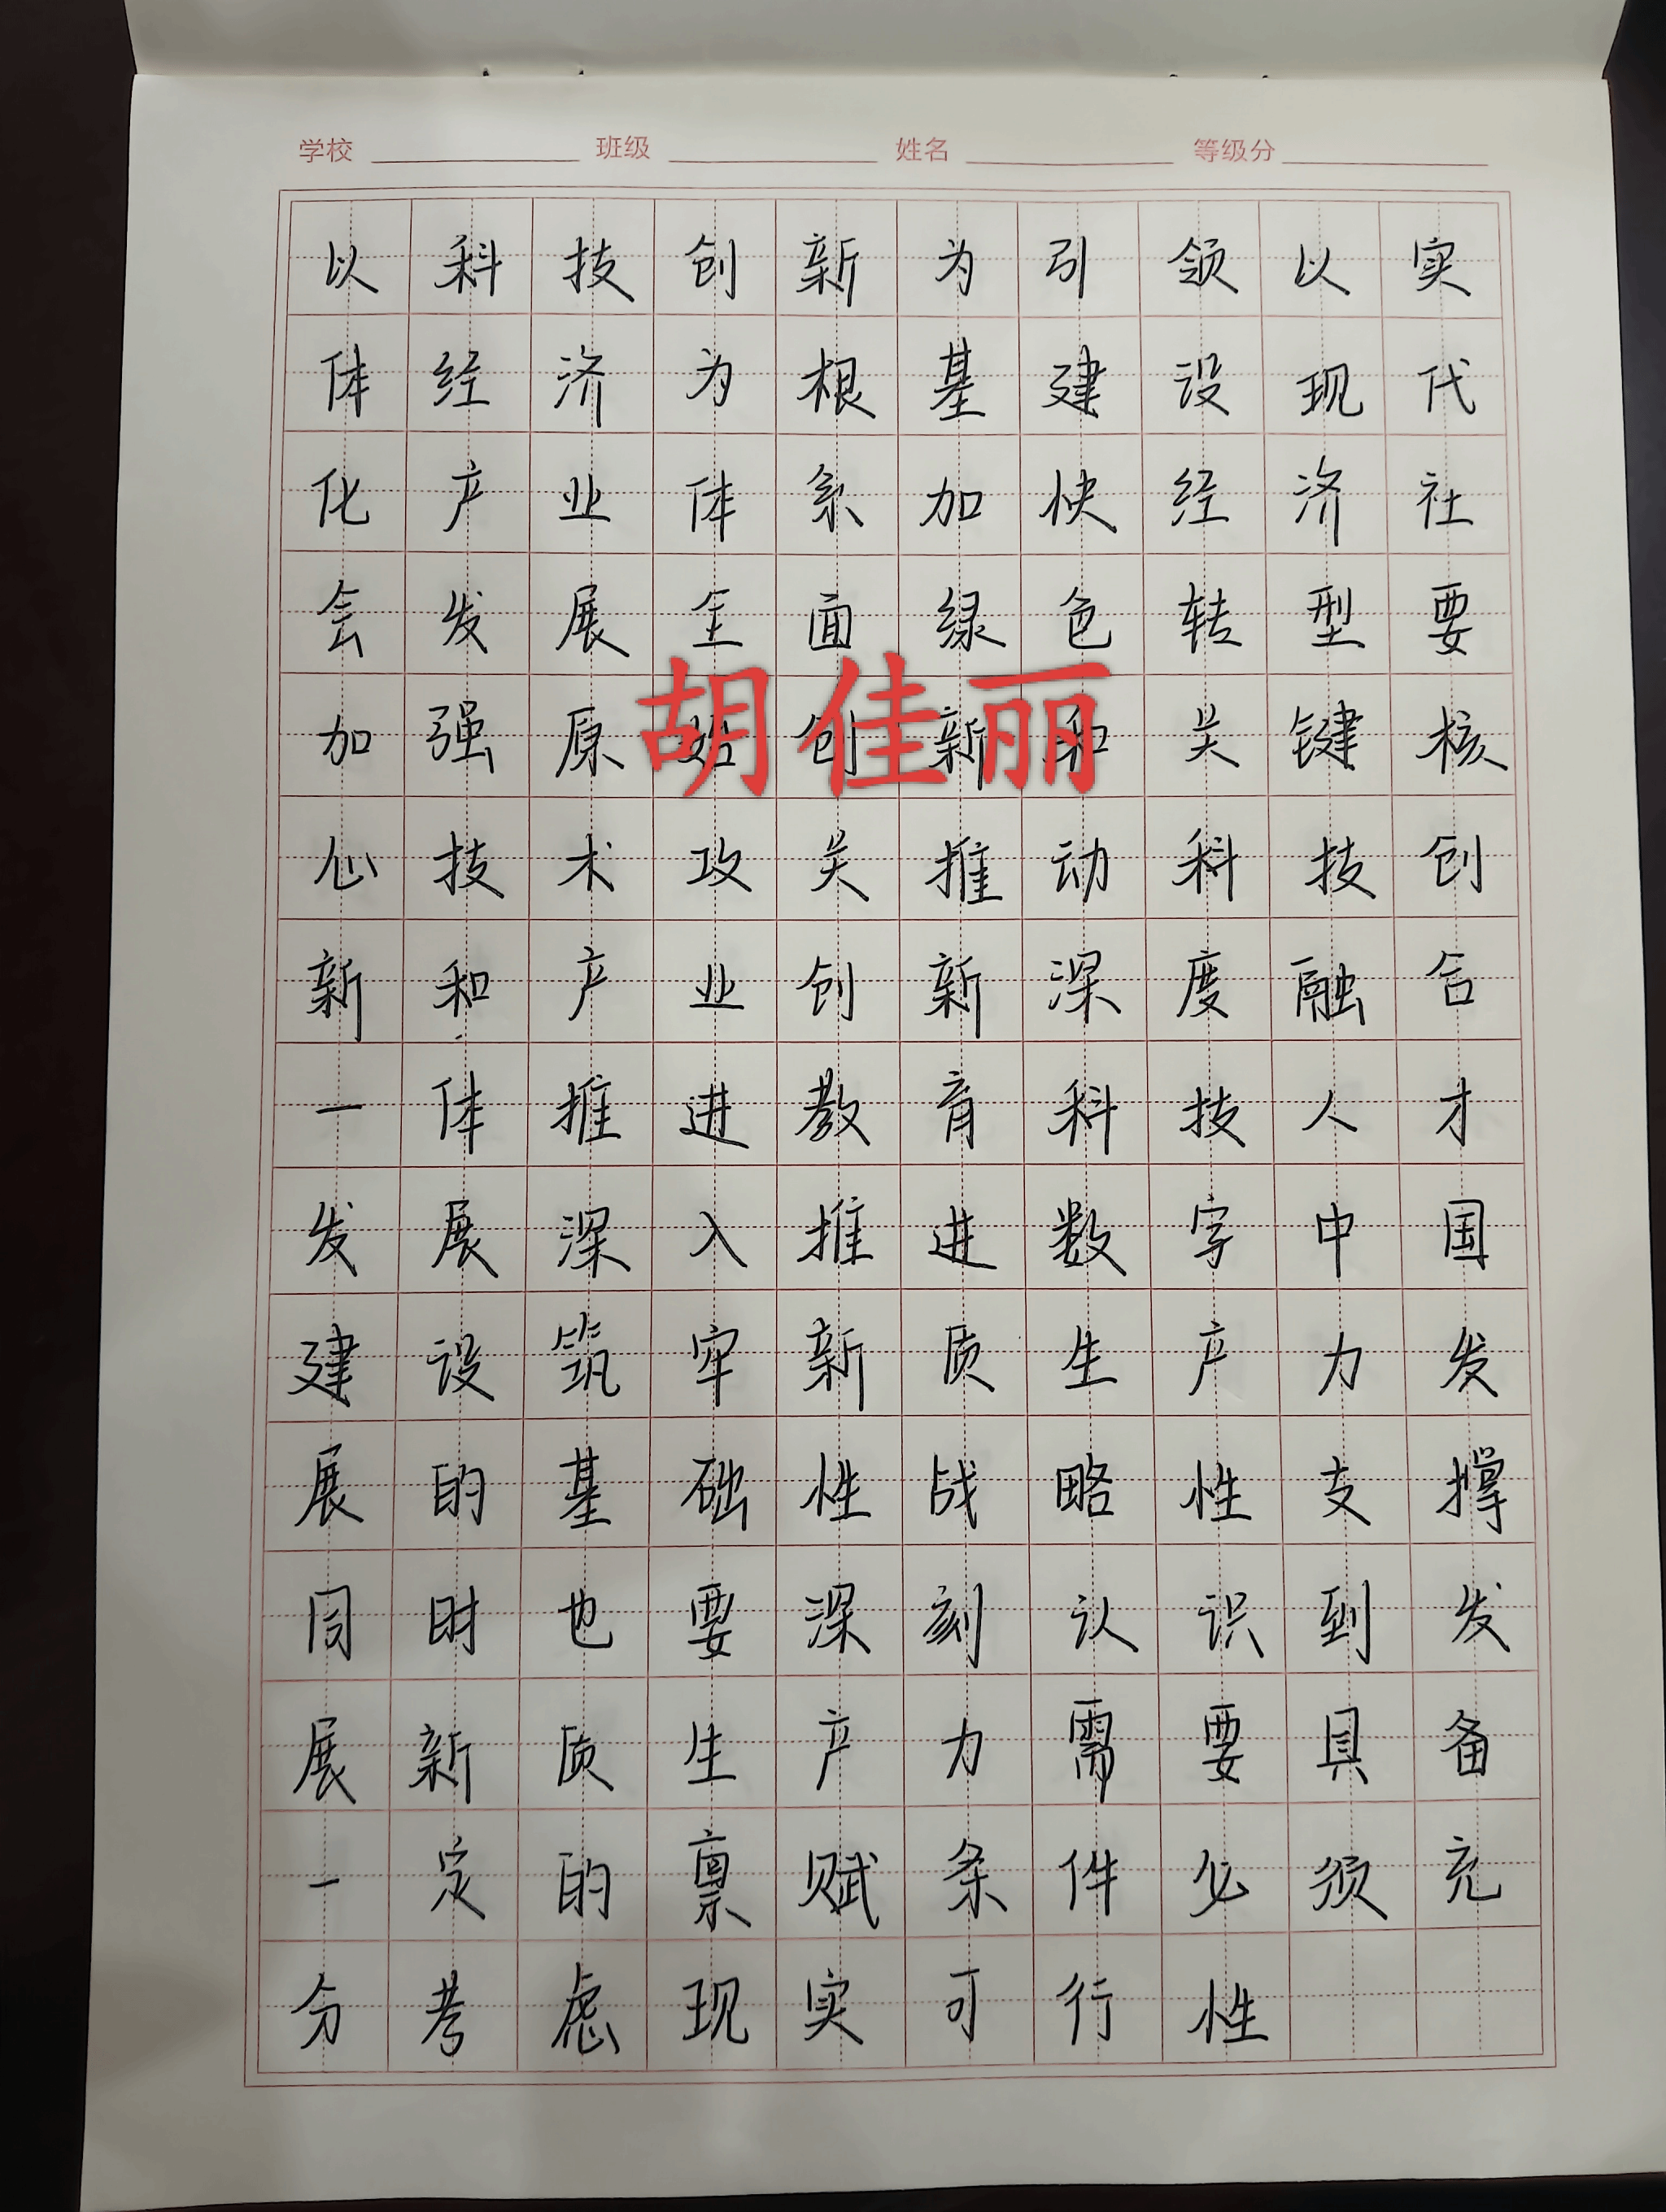 学校 班级 姓名 等级分
以科技创新为引领以实
体经济为根基建设现代
化产业体系加快经济社
会发展全面绿色转型要
胡佳丽
加强原始创新和关键核
心技术攻关推动科技创
新和产业创新深度融合
一体推进教育科技人才
发展深入推进数字中国
建设筑牢新质生产力发
展的基础性战略性支撑
同时也要深刻认识到发
展新质生产力需要具备
一定的禀赋条件必须充
分考虑现实可行性